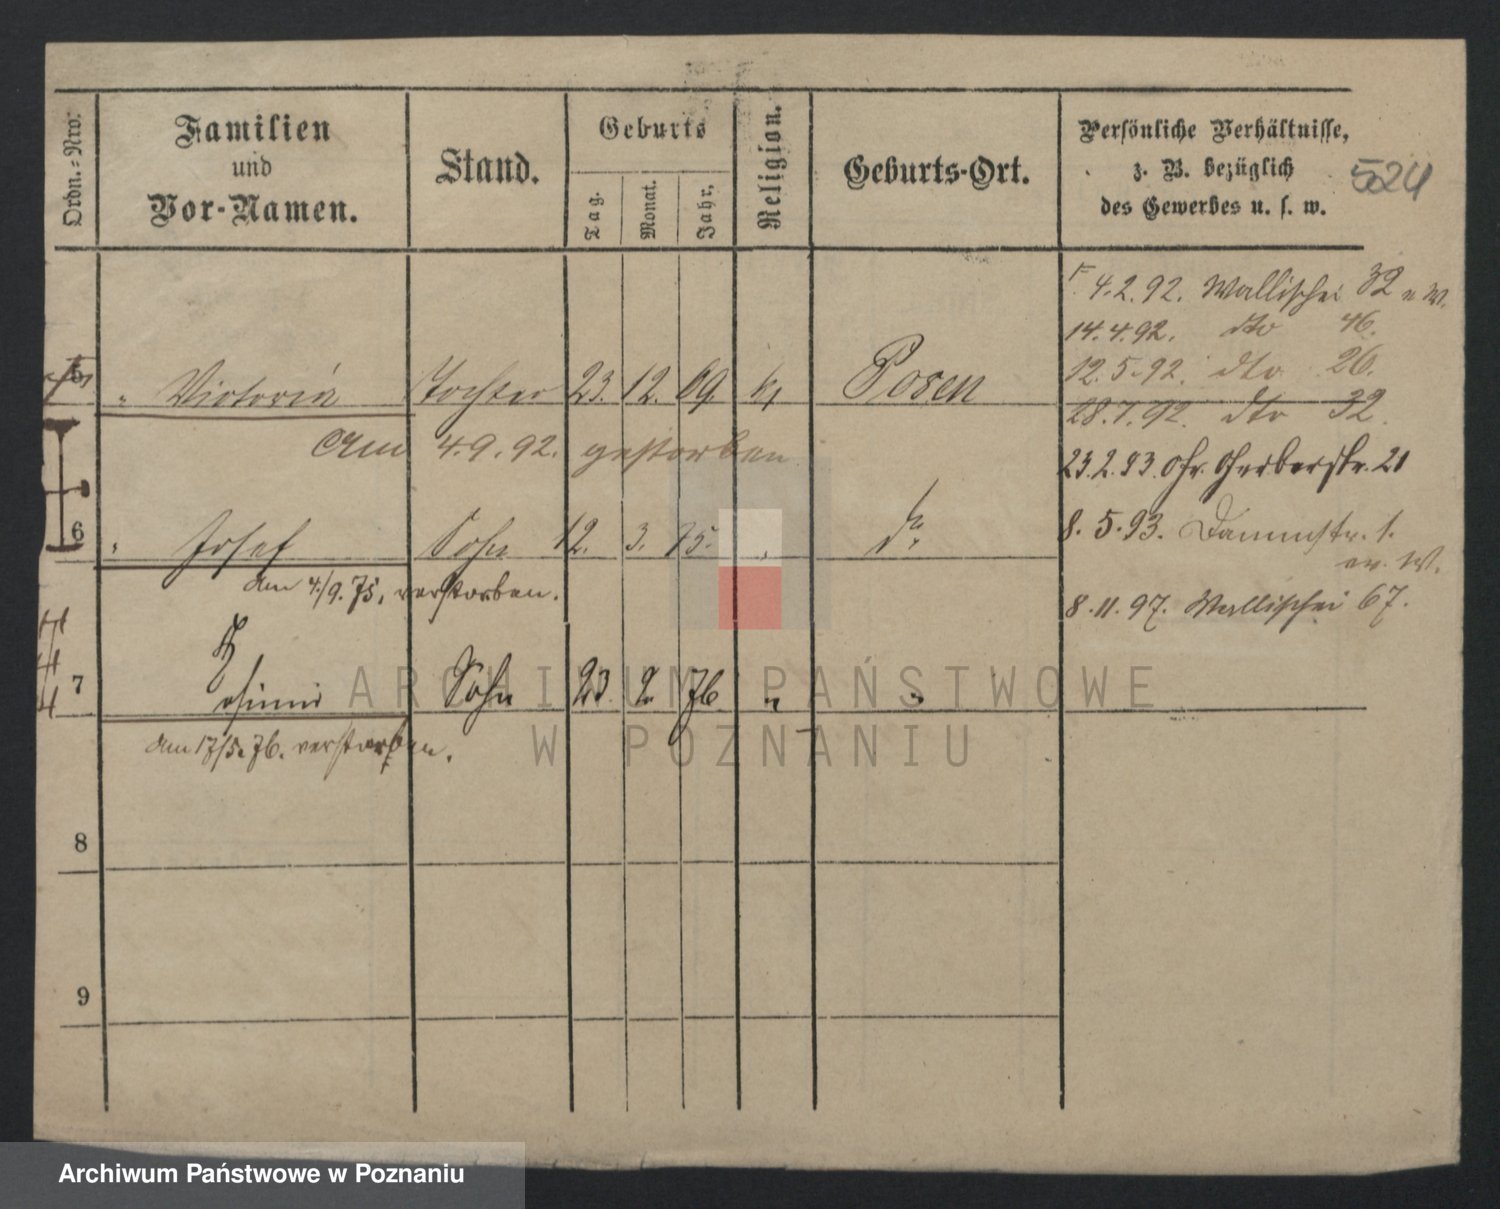 Ordn.=Nro.
Familien
und
Vor-Namen.
Stand.
Geburts
Tag.
Monat.
Jahr,
Religion.
Geburts-Ort.
Persönliche Verhältnisse,
z. B. bezüglich
des Gewerbes u. s. w.
524
4.2.92. Wallischei 32
14.4.92. dto 46.
12.5.92. dto 26.
5 " Victoria Tochter 23. 12. 69. Posen
28.7.92. dto 32.
Am 4.9.92. gestorben
23.2.93. Gr. Gerberstr. 21
6 " Josef Sohn 12. 3. 75. do
8.5.93. Dammstr. 1.
am 4./9.75, verstorben.
8.11.97. Wallischei 67.
7 Sohn 23 2. 76 " "
am 17/5.76. verstorben.
8
9
ARCHIWUM PAŃSTWOWE
W POZNANIU
Archiwum Państwowe w Poznaniu